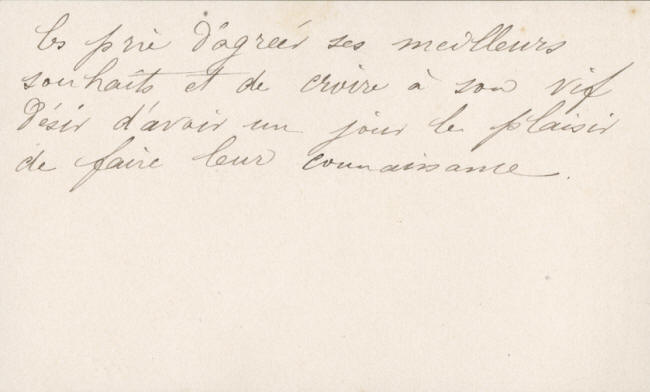 les prie d'agréer ses meilleurs
souhaits et de croire à son vif
désir d'avoir un jour le plaisir
de faire leur connaissance.